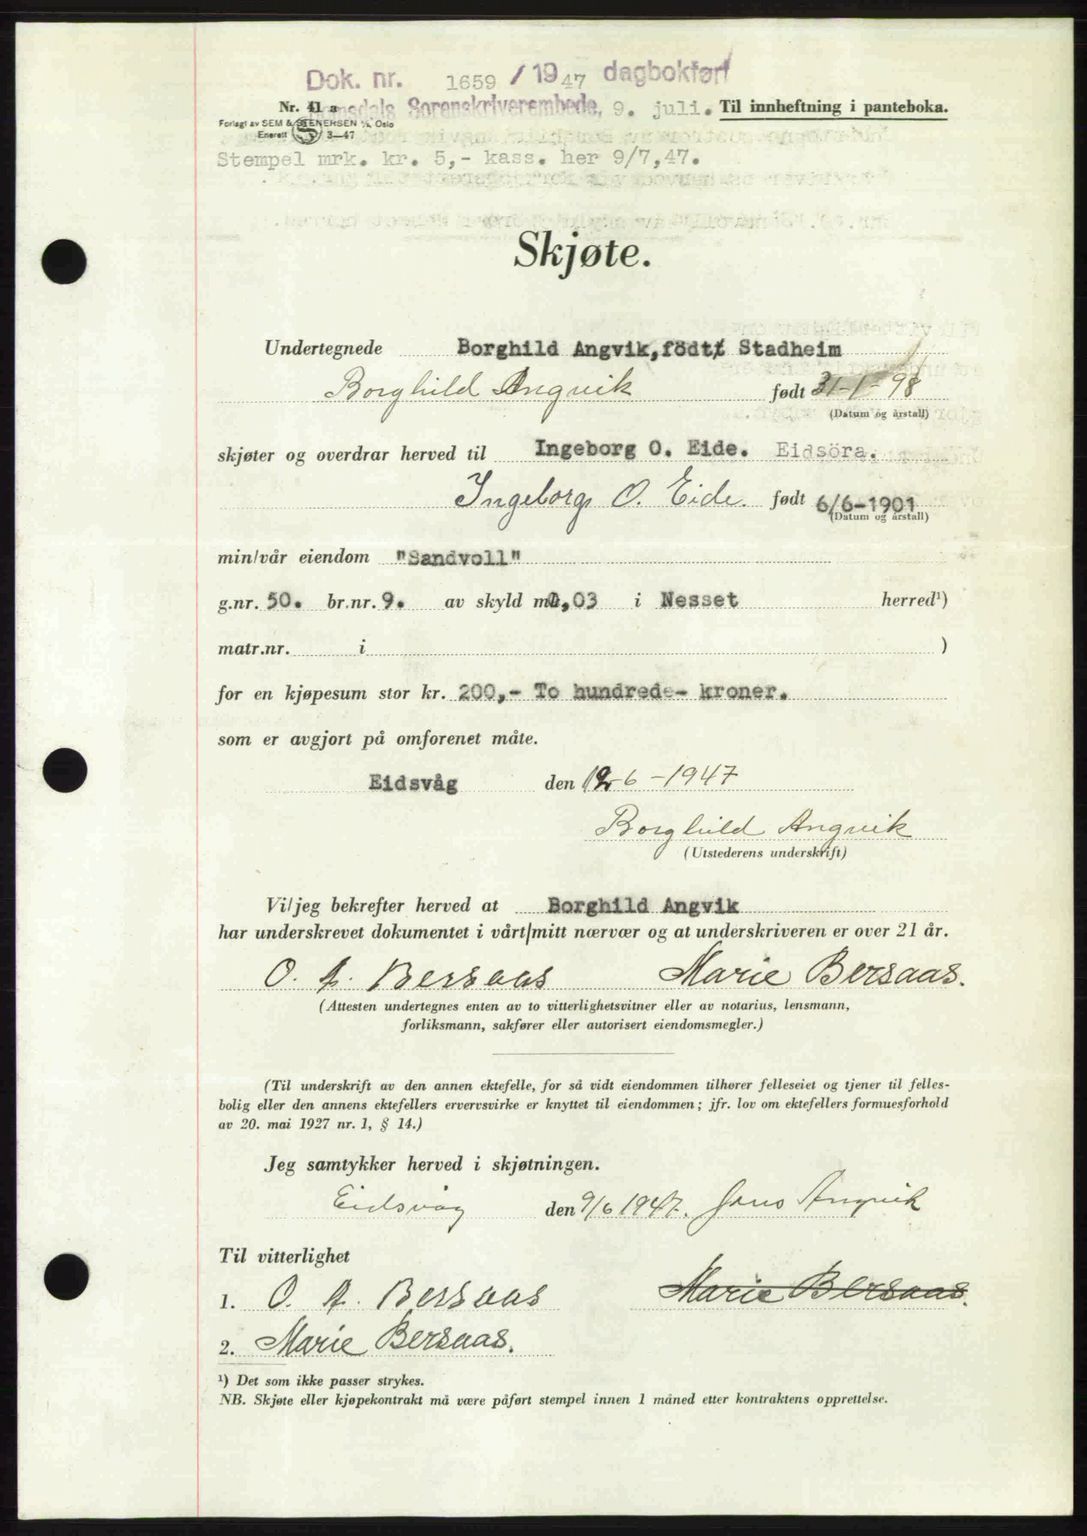 Dok. nr. 1659 / 1947 dagbokført
Nr. 41 a Sorenskriverembede, 9. juli. Til innheftning i panteboka.
Forlagt av SEM & STENERSEN A/S, Oslo
Enerett 3—47
Stempel mrk. kr. 5,- kass. her 9/7,47.
Skjøte.
Undertegnede Borghild Angvik, född Stadheim
Borghild Angvik født 31-1-98
(Datum og årstall)
skjøter og overdrar herved til Ingeborg O. Eide. Eidsöra.
Ingeborg O. Eide. født 6/6-1901
(Datum og årstall)
min/vår eiendom "Sandvoll"
g.nr. 50. br.nr. 9. av skyld m0,03 i Nesset herred¹)
matr.nr. i )
for en kjøpesum stor kr. 200,- To hundrede- kroner.
som er avgjort på omforenet måte.
Eidsvåg den 12-6-1947
Borghild Angvik
(Utstederens underskrift)
Vi/jeg bekrefter herved at Borghild Angvik
har underskrevet dokumentet i vårt/mitt nærvær og at underskriveren er over 21 år.
O. A. Bersaas Marie Bersaas.
(Attesten undertegnes enten av to vitterlighetsvitner eller av notarius, lensmann,
forliksmann, sakfører eller autorisert eiendomsmegler.)
(Til underskrift av den annen ektefelle, for så vidt eiendommen tilhører felleseiet og tjener til felles-
bolig eller den annens ektefellers ervervsvirke er knyttet til eiendommen; jfr. lov om ektefellers formuesforhold
av 20. mai 1927 nr. 1, § 14.)
Jeg samtykker herved i skjøtningen.
Eidsvåg den 9/6 1947. Jens Angvik
Til vitterlighet
1. O. A. Bersaas Marie Bersaas.
2. Marie Bersaas.
¹) Det som ikke passer strykes.
NB. Skjøte eller kjøpekontrakt må være påført stempel innen 1 måned etter kontraktens opprettelse.